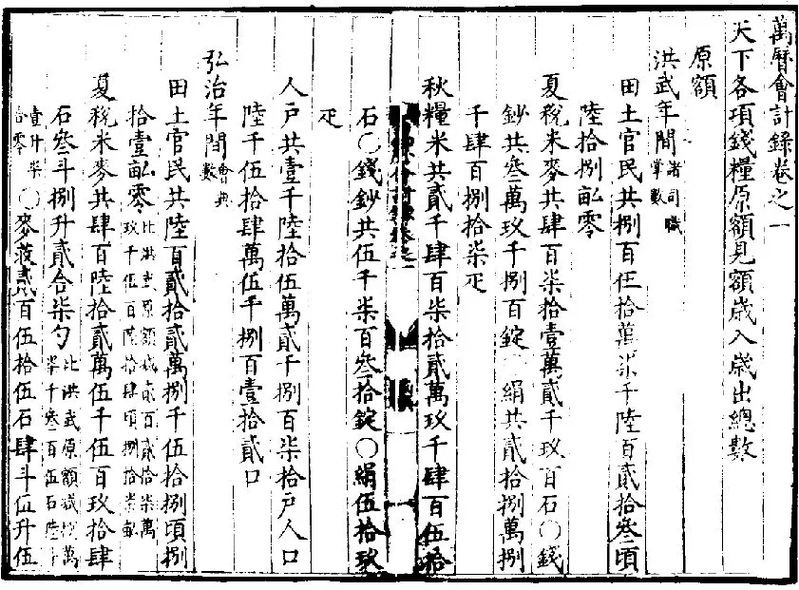 萬曆會計錄卷之一
天下各項錢糧原額見額歲入歲出總數
原額
洪武年間諸司職掌數
田土官民共捌百伍拾萬柒千陸百貳拾叁頃
陸拾捌畝零
夏稅米麥共肆百柒拾壹萬貳千玖百石〇錢
鈔共叁萬玖千捌百錠 絹共貳拾捌萬捌
千肆百捌拾柒疋
秋糧米共貳千肆百柒拾貳萬玖千肆百伍拾
石〇錢鈔共伍千柒百叁拾錠〇絹伍拾玖
疋
人戶共壹千陸拾伍萬貳千捌百柒拾戶人口
陸千伍拾肆萬伍千捌百壹拾貳口
弘治年間會典數
田土官民共陸百貳拾貳萬捌千伍拾捌頃捌
拾壹畝零比洪武原額減貳百貳拾柒萬玖千伍百陸拾肆頃捌拾柒畝
夏稅米麥共肆百陸拾貳萬伍千伍百玖拾肆
石叁斗捌升貳合柒勺比洪武原額減捌萬柒千叁百伍石陸斗
壹升柒合零〇麥荍貳百伍拾伍石肆斗伍升伍